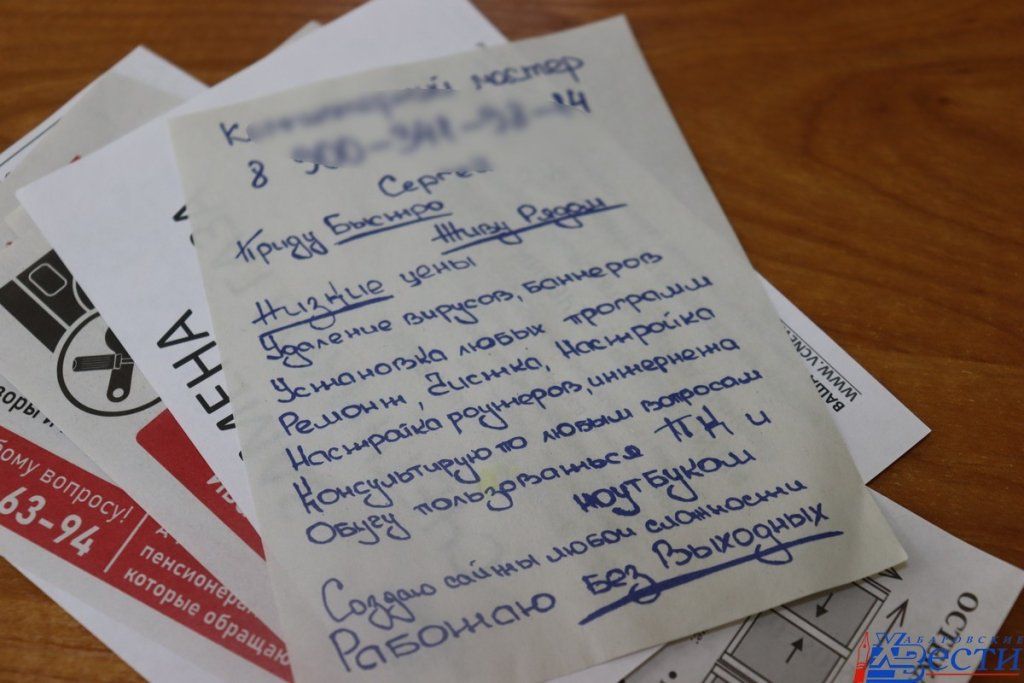 мастер
8
14
Сергей
Приду Быстро
Живу Рядом
Низкие цены
Удаление вирусов, баннеров
Установка любых программ
Ремонт, Чистка, Настройка
Настройка роутеров, интернета
Консультирую по любым вопросам
Обучу пользоваться ПК и
ноутбуком
Создаю сайты любой сложности
Работаю Без Выходных
МЕНА
бому вопросу!
63-94
пенсионера
которые обращаю
WWW.VCNE
ОСТЕК
Хабаровские
Вести